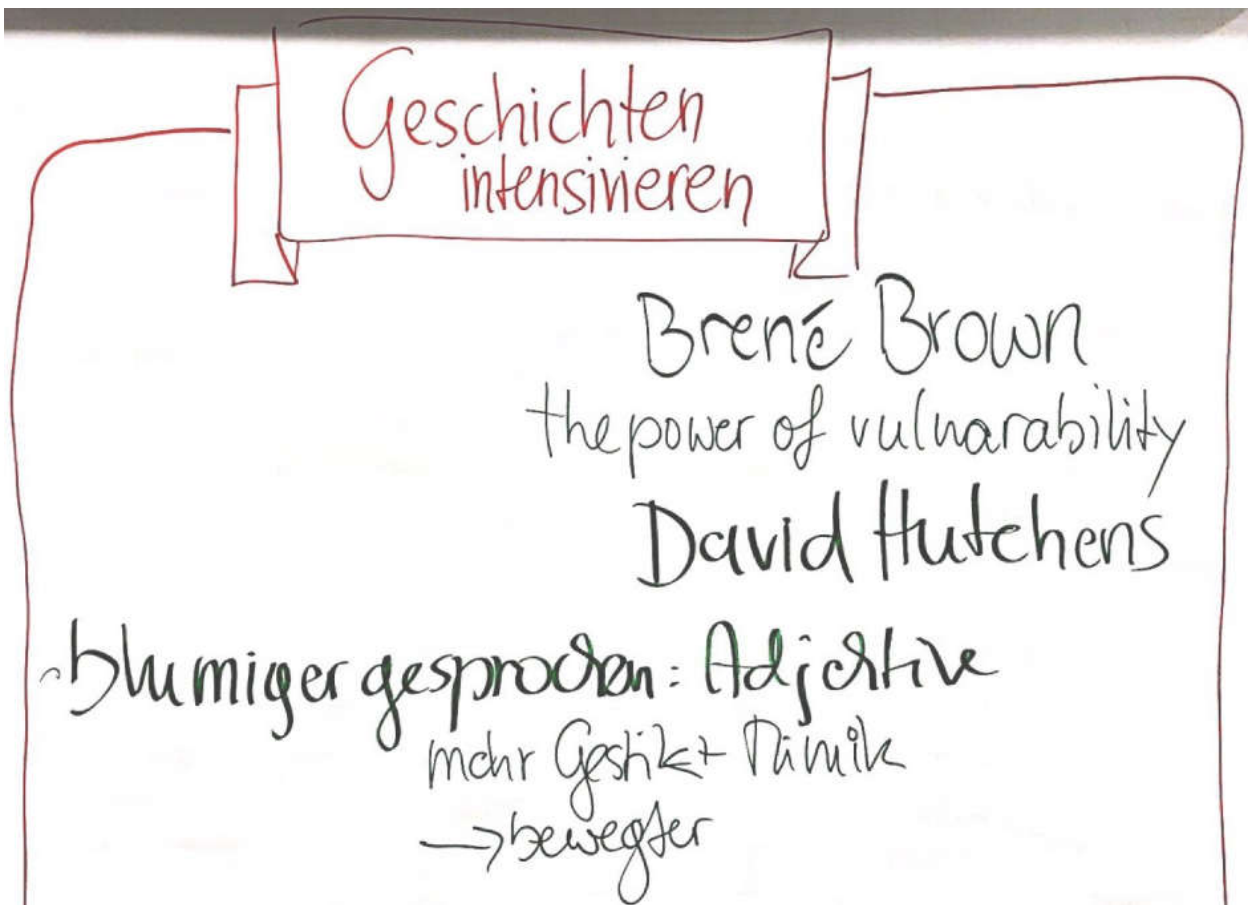 Geschichten
intensivieren
Brené Brown
the power of vulnarability
David Hutchens
- blumiger gesprochen: Adjektive
mehr Gestik + Mimik
→ bewegter